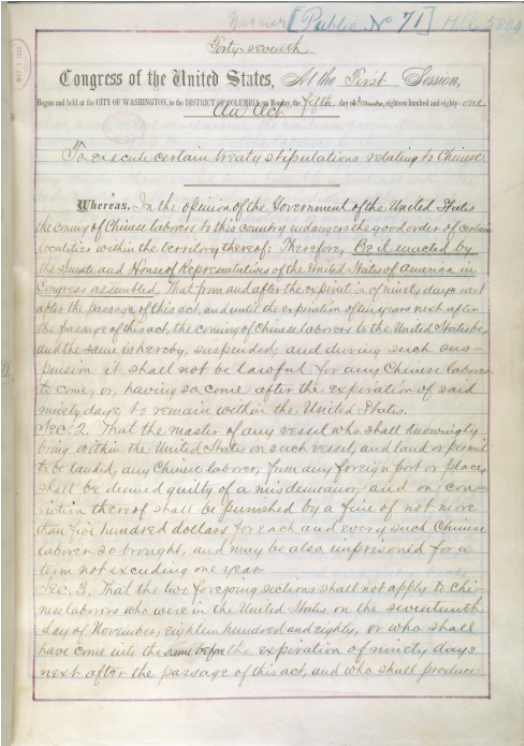 [Public No 71] H.R. 5804
Forty-seventh
Congress of the United States, At the First Session,
Begun and held at the CITY OF WASHINGTON, in the DISTRICT OF COLUMBIA, on Monday, the fifth day of December, eighteen hundred and eighty-one
An Act
To execute certain treaty stipulations relating to Chinese
Whereas, In the opinion of the Government of the United States
the coming of Chinese laborers to this country endangers the good order of certain
localities within the territory thereof: Therefore, Be it enacted by
the Senate and House of Representatives of the United States of America in
Congress assembled, That from and after the expiration of ninety days next
after the passage of this act, and until the expiration of ten years next after
the passage of this act, the coming of Chinese laborers to the United States be,
and the same is hereby, suspended; and during such sus-
pension it shall not be lawful for any Chinese laborer
to come, or, having so come after the expiration of said
ninety days, to remain within the United States.
Sec. 2. That the master of any vessel who shall knowingly
bring within the United States on such vessel, and land or permit
to be landed, any Chinese laborer, from any foreign port or place,
shall be deemed guilty of a misdemeanor, and on con-
viction thereof shall be punished by a fine of not more
than five hundred dollars for each and every such Chinese
laborer so brought, and may be also imprisoned for a
term not exceeding one year.
Sec. 3. That the two foregoing sections shall not apply to Chi-
nese laborers who were in the United States on the seventeenth
day of November, eighteen hundred and eighty, or who shall
have come into the same before the expiration of ninety days
next after the passage of this act, and who shall produce